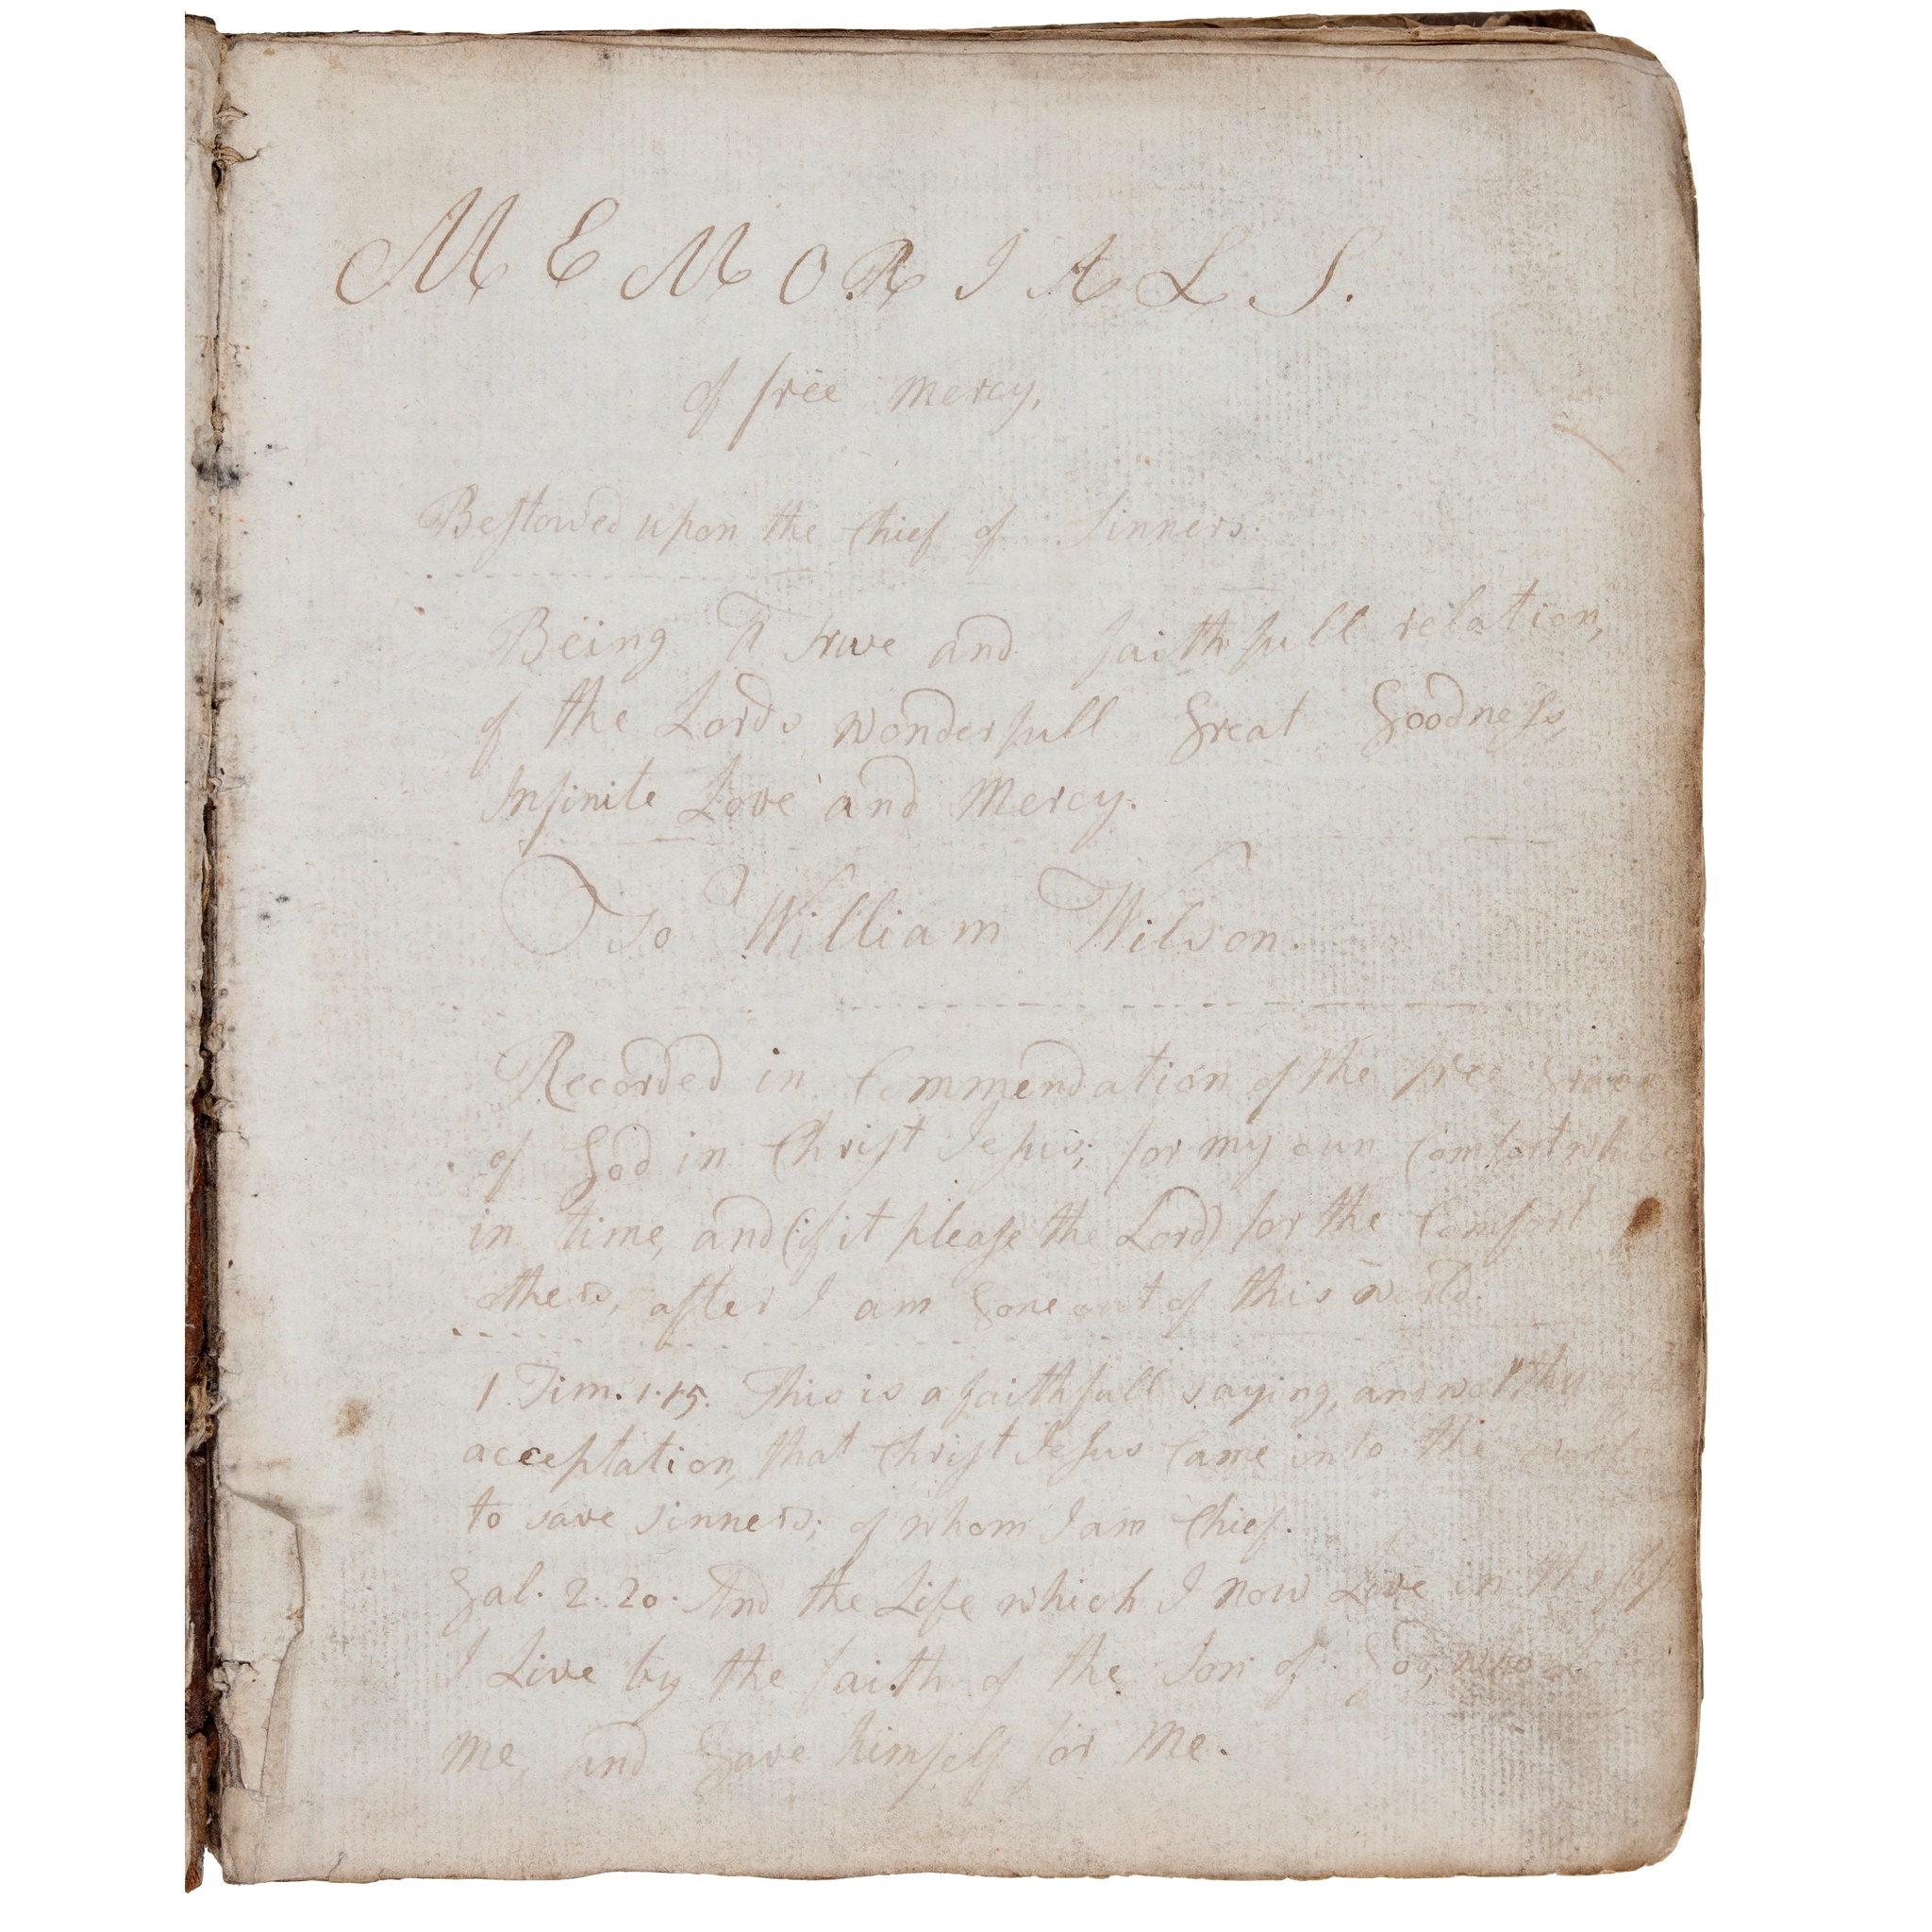 MEMORIALS.
of free mercy,
Bestowed upon the Chief of Sinners.
Being A true and faithfull relation,
of the Lords wonderfull Great Goodness,
Infinite Love and Mercy.
To William Wilson.
Recorded in Commendation of the free Grace
of God in Christ Jesus; for my own Comfort while
in time, and (if it please the Lord) for the Comfort
others, after I am Gone out of this world.
1 Tim. 1.15. This is a faithfull saying, and worthy
acceptation, that Christ Jesus Came into the world
to save sinners; of whom I am Chief.
Gal. 2.20. And the Life which I now Live in the
I Live by the faith of the Son of God, who
me, and Gave himself for Me.